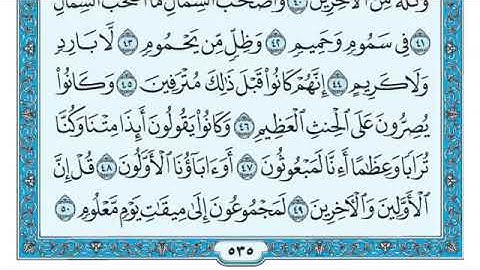 وَثُلَّةٌ مِّنَ ٱلْأَخِرِينَ ۝٤٠ وَأَصْحَٰبُ ٱلشِّمَالِ مَآ أَصْحَٰبُ ٱلشِّمَالِ
۝٤١ فِى سَمُومٍ وَحَمِيمٍ ۝٤٢ وَظِلٍّ مِّن يَحْمُومٍ ۝٤٣ لَّا بَارِدٍ
وَلَا كَرِيمٍ ۝٤٤ إِنَّهُمْ كَانُوا۟ قَبْلَ ذَٰلِكَ مُتْرَفِينَ ۝٤٥ وَكَانُوا۟
يُصِرُّونَ عَلَى ٱلْحِنثِ ٱلْعَظِيمِ ۝٤٦ وَكَانُوا۟ يَقُولُونَ أَئِذَا مِتْنَا وَكُنَّا
تُرَابًا وَعِظَٰمًا أَءِنَّا لَمَبْعُوثُونَ ۝٤٧ أَوَءَابَآؤُنَا ٱلْأَوَّلُونَ ۝٤٨ قُلْ إِنَّ
ٱلْأَوَّلِينَ وَٱلْأَخِرِينَ ۝٤٩ لَمَجْمُوعُونَ إِلَىٰ مِيقَٰتِ يَوْمٍ مَّعْلُومٍ ۝٥٠
٥٣٥